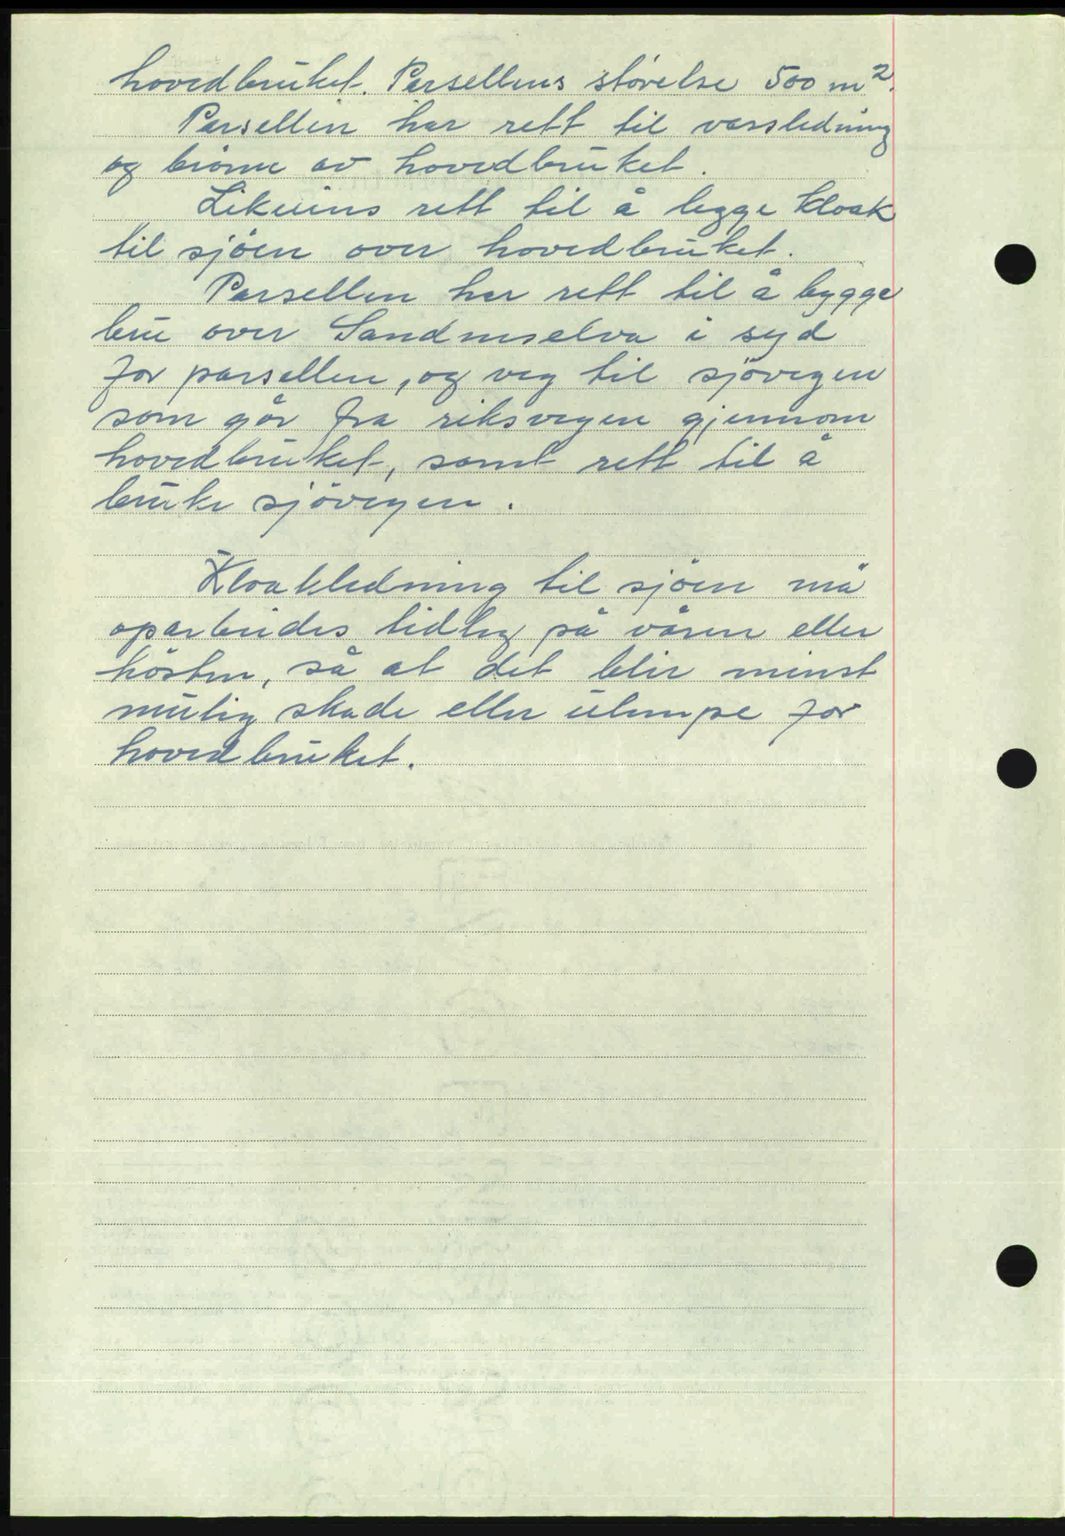 hovedbruket. Parsellens störelse 500 m².
Parsellen har rett til vassledning
og brönn av hovedbruket.
Likeeins rett til å legge kloak
til sjöen over hovedbruket.
Parsellen har rett til å bygge
bru over Sandneselva i syd
for parsellen, og veg til sjövegen
som går fra riksvegen gjennom
hovedbruket, samt rett til å
bruke sjövegen.
Kloakledning til sjöen må
oparbeides tidlig på våren eller
hösten, så at det blir minst
mulig skade eller ulempe for
hovedbruket.